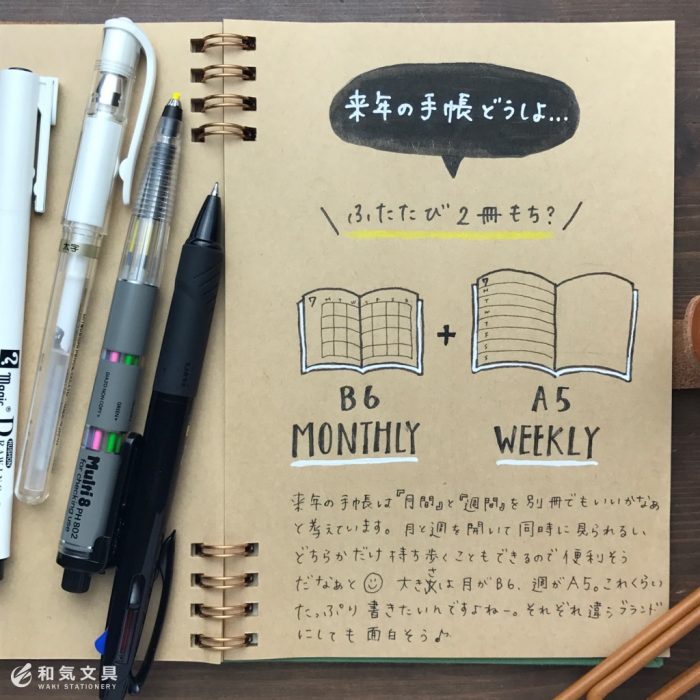 来年の手帳どうしよ...
\ ふたたび2冊もち? /
7 M T W T F S S
7
M
T
W
T
F
S
S
+
B6
MONTHLY
A5
WEEKLY
来年の手帳は『月間』と『週間』を別冊でもいいかなぁ
と考えています。月と週を開いて同時に見られるし、
どちらかだけ持ち歩くこともできるので便利そう
だなぁと☺ 大きさは月がB6、週がA5。これくらい
たっぷり書きたいんですよねー。それぞれ違うブランド
にしても面白そう♪
太字
Magic®
Multi 8 PH 802
for checking use
和気文具
WAKI STATIONERY